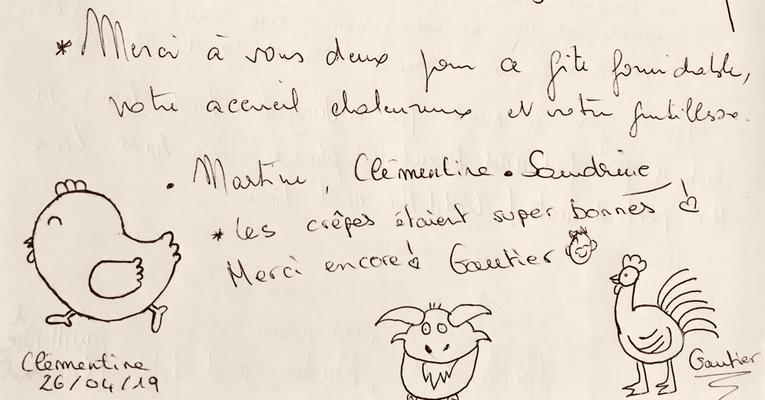 * Merci à vous deux pour ce gîte formidable,
votre accueil chaleureux et votre gentillesse.
• Martine, Clémentine • Sandrine
* Les crêpes étaient super bonnes !
Merci encore ! Gautier
Clémentine
26/04/19
Gautier